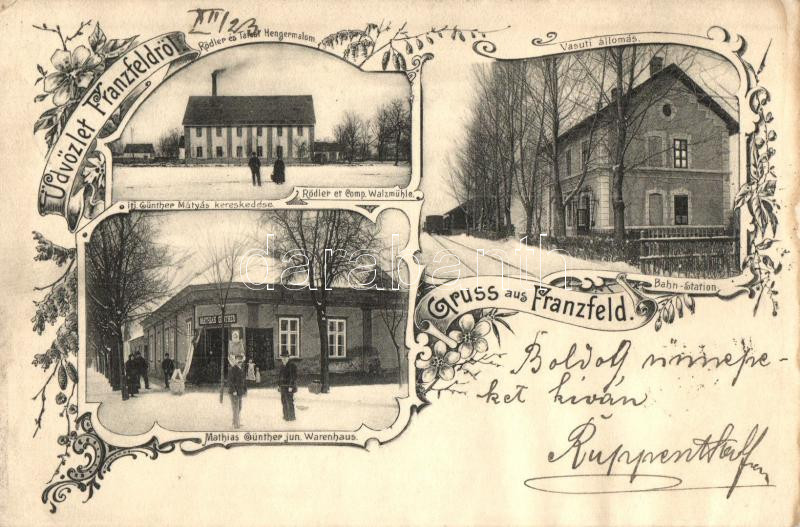 XII/23
Üdvözlet Franzfeldről
Rödler és Társa Hengermalom
Vasuti állomás.
Rödler et Comp. Walzmühle.
ifj Günther Mátyás kereskedése
MATHIAS GÜNTHER
darabanth.com
Bahn-Station
Gruss aus Franzfeld.
Boldog ünnepe-
ket kíván
Mathias Günther jun. Warenhaus.